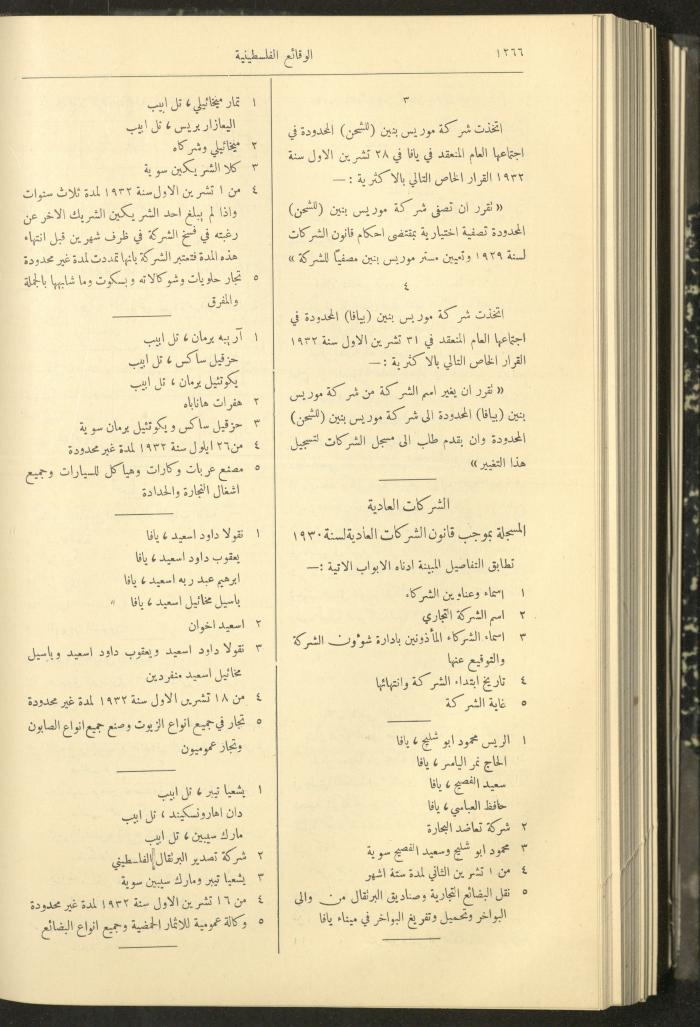 ١٢٦٦
الوقائع الفلسطينية
٣
اتخذت شركة موريس بنين (للشحن) المحدودة في
اجتماعها العام المنعقد في يافا في ٢٨ تشرين الاول سنة
١٩٣٢ القرار الخاص التالي بالاكثرية :—
« نقرر ان تصفى شركة موريس بنين (للشحن)
المحدودة تصفية اختيارية بمقتضى احكام قانون الشركات
لسنة ١٩٢٩ وتعيين مستر موريس بنين مصفياً للشركة »
٤
اتخذت شركة موريس بنين (بيافا) المحدودة في
اجتماعها العام المنعقد في ٣١ تشرين الاول سنة ١٩٣٢
القرار الخاص التالي بالاكثرية :—
« نقرر ان يغير اسم الشركة من شركة موريس
بنين (بيافا) المحدودة الى شركة موريس بنين (للشحن)
المحدودة وان يقدم طلب الى مسجل الشركات لتسجيل
هذا التغيير »
الشركات العادية
المسجلة بموجب قانون الشركات العادية لسنة ١٩٣٠
تطابق التفاصيل المبينة ادناه الابواب الاتية :—
١ اسماء وعناوين الشركاء
٢ اسم الشركة التجاري
٣ اسماء الشركاء المأذونين بادارة شوءون الشركة
والتوقيع عنها
٤ تاريخ ابتداء الشركة وانتهائها
٥ غاية الشركة
١ الريس محمود ابو شليح ، يافا
الحاج نمر اليامر ، يافا
سعيد الفصيح ، يافا
حافظ العباسي ، يافا
٢ شركة تعاضد البحارة
٣ محمود ابو شليح وسعيد الفصيح سوية
٤ من ١ تشرين الثاني لمدة ستة اشهر
٥ نقل البضائع التجارية وصناديق البرتقال من والى
البواخر وتحميل وتفريغ البواخر في ميناء يافا
١ تمار ميخائيلي ، تل ابيب
اليعازار بريس ، تل ابيب
٢ ميخائيلي وشركاه
٣ كلا الشريكين سوية
٤ من ١ تشرين الاول سنة ١٩٣٢ لمدة ثلاث سنوات
واذا لم يبلغ احد الشريكين الشريك الاخر عن
رغبته في فسخ الشركة في ظرف شهرين قبل انتهاء
هذه المدة فتعتبر الشركة بانها تمددت لمدة غير محدودة
٥ تجار حلويات وشوكالاته وبسكوت وما شابهها بالجملة
والمفرق
١ آرييه برمان ، تل ابيب
حزقيل ساكس ، تل ابيب
يكوتئيل برمان ، تل ابيب
٢ هفرات هاناباه
٣ حزقيل ساكس ويكوتئيل برمان سوية
٤ من ٢٦ ايلول سنة ١٩٣٢ لمدة غير محدودة
٥ مصنع عربات وكارات وهياكل للسيارات وجميع
اشغال النجارة والحدادة
١ نقولا داود اسعيد ، يافا
يعقوب داود اسعيد ، يافا
ابرهيم عبد ربه اسعيد ، يافا
باسيل مخائيل اسعيد ، يافا
٢ اسعيد اخوان
٣ نقولا داود اسعيد ويعقوب داود اسعيد وباسيل
مخائيل اسعيد منفردين
٤ من ١٨ تشرين الاول سنة ١٩٣٢ لمدة غير محدودة
٥ تجار في جميع انواع الزيوت وصنع جميع انواع الصابون
وتجار عموميون
١ يشعيا تيبر ، تل ابيب
دان اهارونسكيند ، تل ابيب
مارك سيبين ، تل ابيب
٢ شركة تصدير البرتقال الفلسطيني
٣ يشعيا تيبر ومارك سيبين سوية
٤ من ١٦ تشرين الاول سنة ١٩٣٢ لمدة غير محدودة
٥ وكالة عمومية للاثمار الحمضية وجميع انواع البضائع